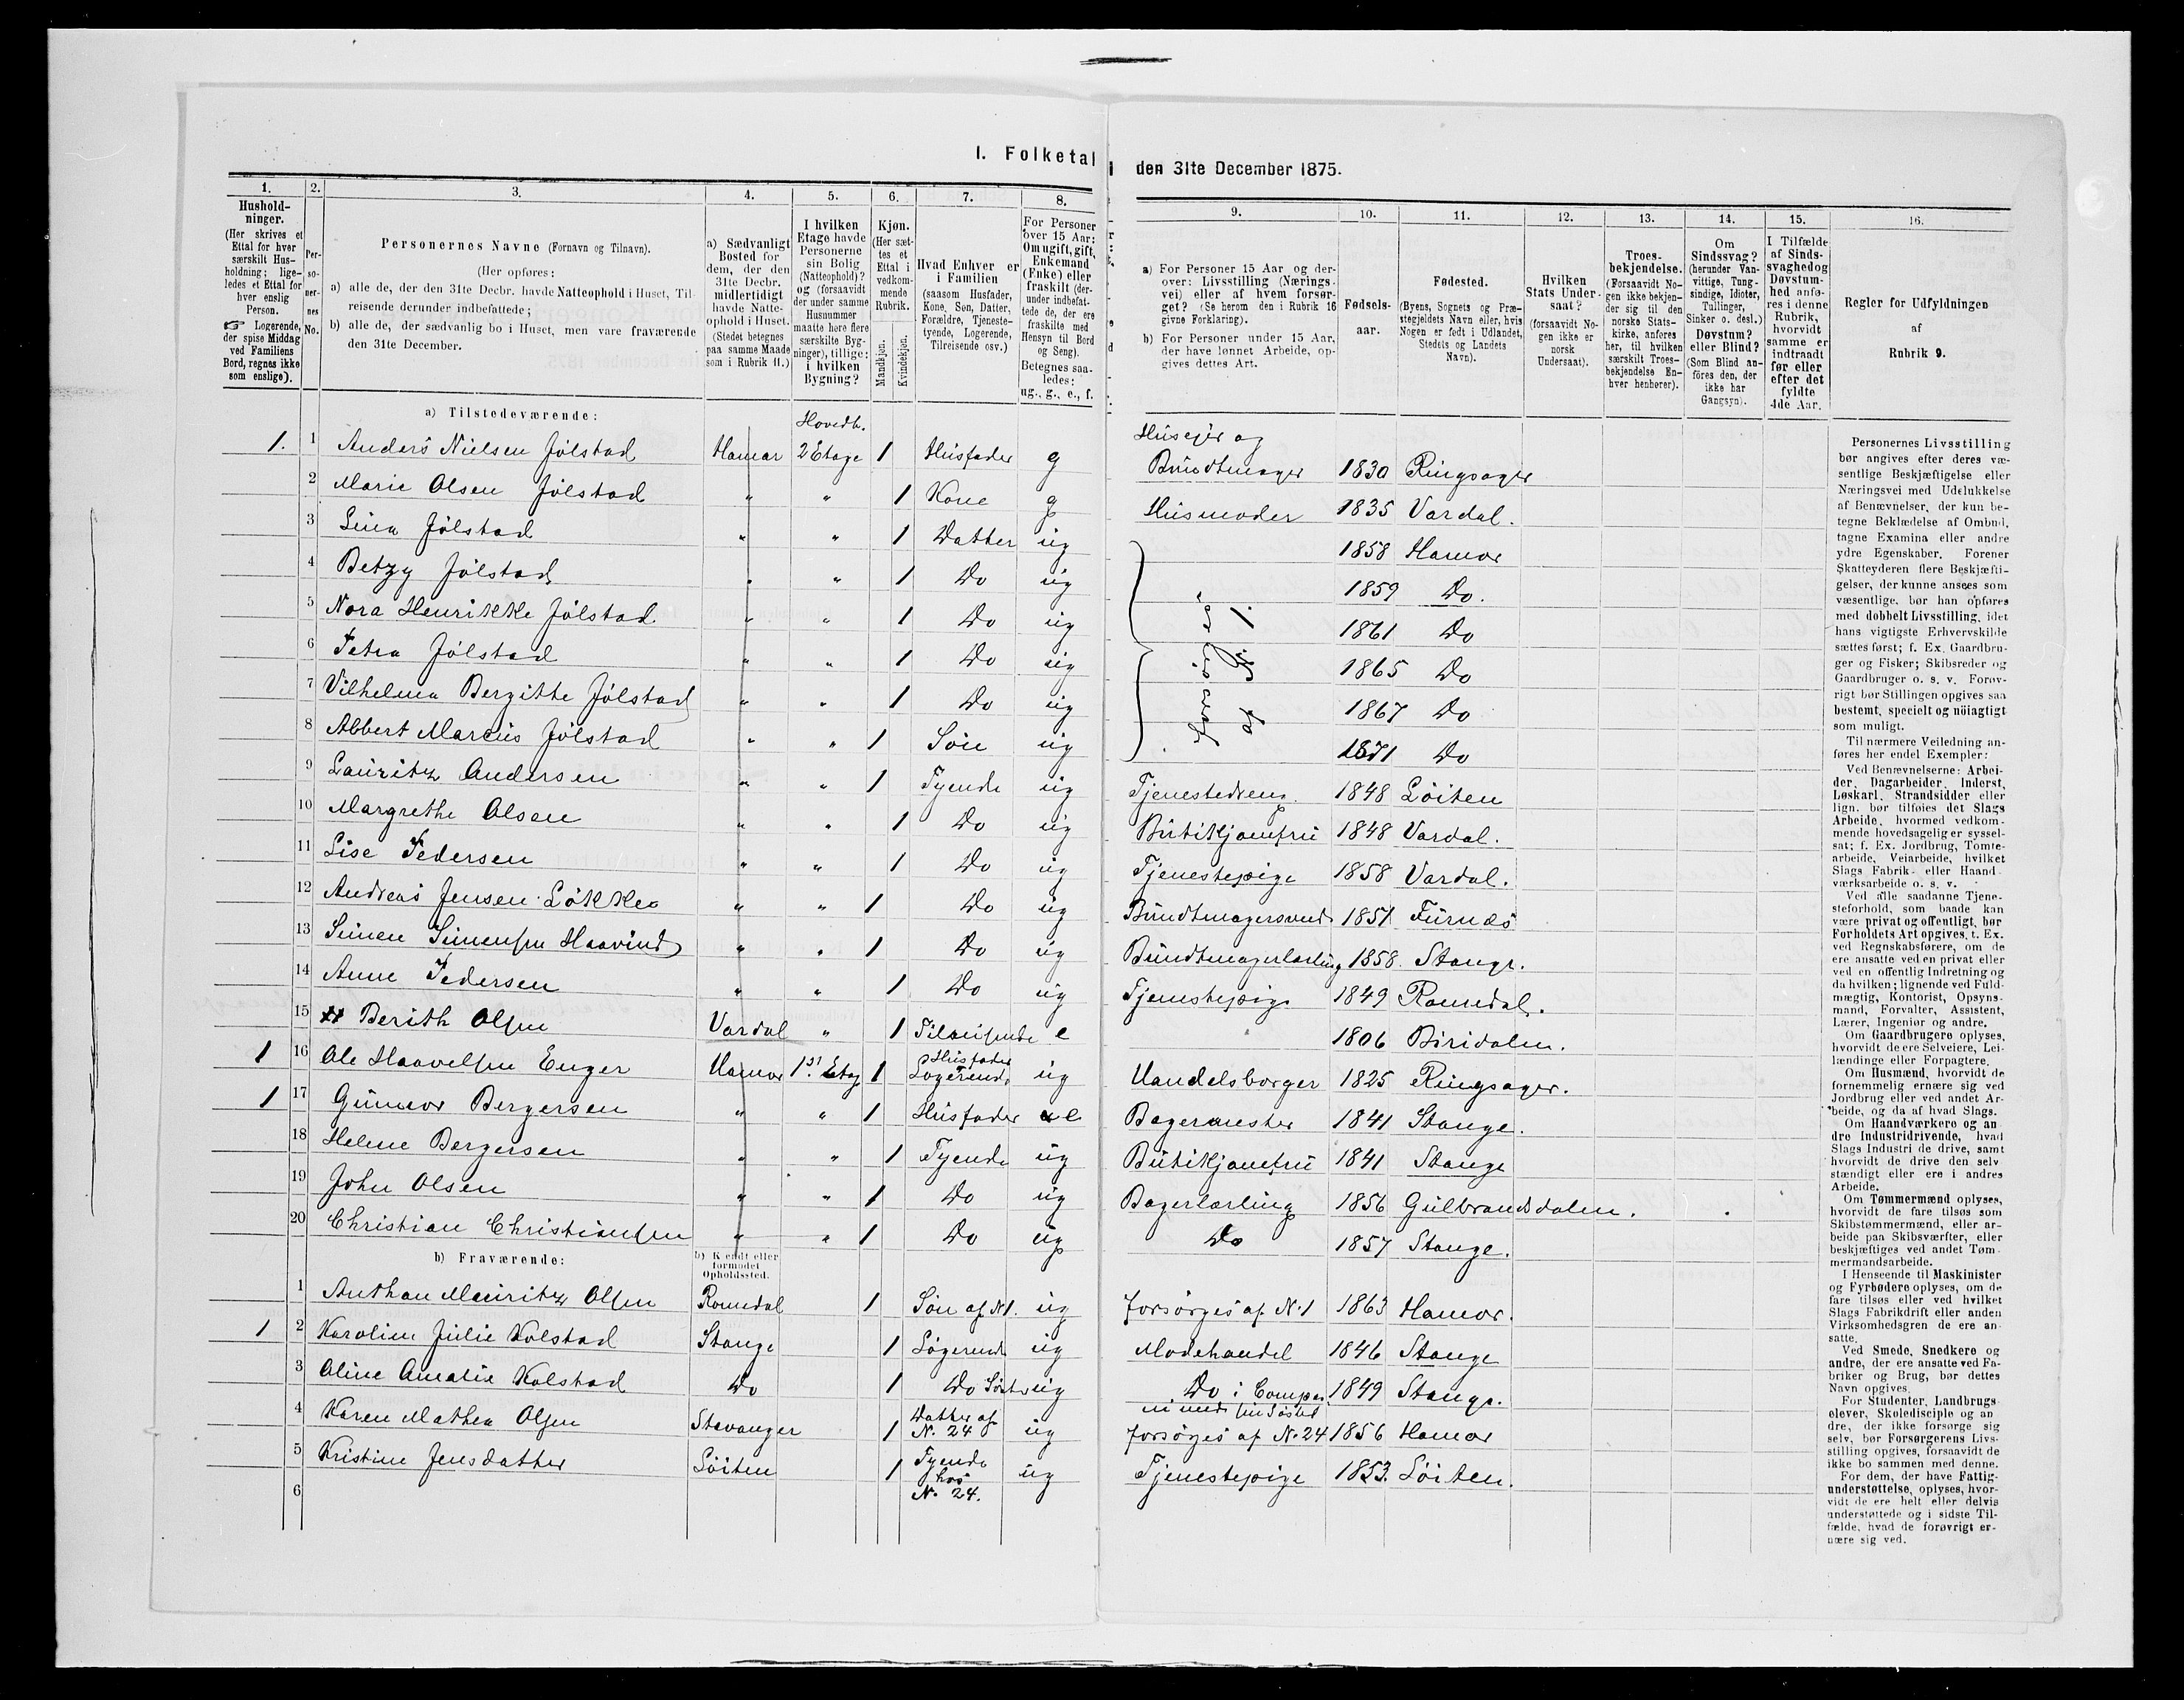 I. Folketal
den 31te December 1875.
1. 2. 3. 4. 5. 6. 7. 8.
9. 10. 11. 12. 13. 14. 15. 16.
Husholdninger.
(Her skrives et Ettal for hver særskilt Husholdning; ligeledes et Ettal for hver enslig Person.
☞ Logerende, der spise Middag ved Familiens Bord, regnes ikke som enslige).
Personernes No.
Personernes Navne (Fornavn og Tilnavn).
(Her opføres:
a) alle de, der den 31te Decbr. havde Natteophold i Huset, Tilreisende derunder indbefattede;
b) alle de, der sædvanlig bo i Huset, men vare fraværende den 31te December.
a) Sædvanligt Bosted for dem, der den 31te Decbr. midlertidigt havde Natteophold i Huset. (Stedet betegnes paa samme Maade som i Rubrik 11.)
I hvilken Etage havde Personerne sin Bolig (Natteophold)? og (forsaavidt der under samme Husnummer maatte høre flere særskilte Bygninger), tillige: i hvilken Bygning?
Kjøn. (Her sættes et Ettal i vedkommende Rubrik.
Mandkjøn. Kvindekjøn.
Hvad Enhver er i Familien (saasom Husfader, Kone, Søn, Datter, Forældre, Tjenestetyende, Logerende, Tilreisende osv.)
For Personer over 15 Aar: Om ugift, gift, Enkemand (Enke) eller fraskilt (derunder indbefattede de, der ere fraskilte med Hensyn til Bord og Seng). Betegnes saaledes: ug., g., e., f.
a) For Personer 15 Aar og derover: Livsstilling (Næringsvei) eller af hvem forsørget? (Se herom den i Rubrik 16 givne Forklaring).
b) For Personer under 15 Aar, der have lønnet Arbeide, opgives dettes Art.
Fødselsaar.
Fødested. (Byens, Sognets og Præstegjeldets Navn eller, hvis Nogen er født i Udlandet, Stedets og Landets Navn).
Hvilken Stats Undersaat? (forsaavidt Nogen ikke er norsk Undersaat).
Troesbekjendelse. (Forsaavidt Nogen ikke bekjender sig til den norske Statskirke, anføres her, til hvilken særskilt Troesbekjendelse Enhver henhører).
Om Sindssvag? (herunder Vanvittige, Tungsindige, Idioter, Tullinger, Sinker o. desl.) Døvstum? eller Blind? (Som Blind anføres den, der ikke har Gangsyn).
I Tilfælde af Sindssvaghed og Døvstumhed anføres i denne Rubrik, hvorvidt samme er indtraadt før eller efter det fyldte 4de Aar.
Regler for Udfyldningen af Rubrik 9.
a) Tilstedeværende:
Hovedb.
1. 1 Anders Nielsen Jølstad Hamar 2 Etage 1 Husfader g Huseier og Bundtmager 1830 Ringsager
2 Marie Olsen Jølstad " " 1 Kone g Husmoder 1835 Vardal.
3 Lina Jølstad " " 1 Datter ug 1858 Hamar
4 Betzy Jølstad " " 1 Do ug 1859 Do.
5 Nora Henrikke Jølstad " " 1 Do ug 1861 Do
6 Petra Jølstad " " 1 Do ug 1865 Do
7 Vilhelma Bergitte Jølstad " " 1 Do ug 1867 Do
8 Abbert Marcus Jølstad " " 1 Søn ug 1871 Do
9 Lauritz Andersen " " 1 Tyende ug Tjenestedreng. 1848 Löiten
10 Margrethe Olsen " " 1 Do ug Butikjomfru 1848 Vardal.
11 Lise Pedersen " " 1 Do ug Tjenestepige 1858 Vardal.
12 Andreas Jensen Løkken " " 1 Do ug Bundtmagersvend 1851 Furnæs
13 Simen Simensen Haavind " " 1 Do ug Bundtmagerlærling 1858. Stange.
14 Anne Pedersen " " 1 Do ug Tjenestepige 1849 Romedal.
15 Berith Olsen Vardal " 1 Tilreisende e 1806 Biridalen.
1 16 Ole Haavelsen Enger Hamar 1ste Etag 1 Husfader Logerende ug Handelsborger 1825 Ringsager.
1 17 Gunnar Bergersen " " 1 Husfader e Bagermester 1841 Stange.
18 Helene Bergersen " " 1 Tyende ug Butikjomfru 1841 Stange
19 John Olsen " " 1 Do ug Bagerlærling 1856 Gulbrandsdalen.
20 Christian Christiansen " " 1 Do ug Do 1857 Stange.
b) Fraværende:
b) Kjendt eller formodet Opholdssted.
1 Anthon Mauritz Olsen Romedal 1 Søn af N1. ug forsørges af N.1 1863 Hamar.
1 2 Karoline Julie Kolstad Stange 1 Logerende ug Modehandel 1846 Stange
3 Oline Amalie Kolstad Do 1 Do Søster ug Do i Compagni med sin Søster 1849 Stange.
4 Karen Mathea Olsen Stavanger 1 Datter af N. 24 ug forsørges af N. 24 1856 Hamar
5 Kristine Jensdatter Löiten 1 Tyende hos N. 24. ug Tjenestepige 1853. Löiten.
6
Personernes Livsstilling bør angives efter deres væsentlige Beskjæftigelse eller Næringsvei med Udelukkelse af Benævnelser, der kun betegne Beklædelse af Ombud, tagne Examina eller andre ydre Egenskaber. Forener Skatteyderen flere Beskjæftigelser, der kunne ansees som væsentlige, bør han opføres med dobbelt Livsstilling, idet hans vigtigste Erhvervskilde sættes først; f. Ex. Gaardbruger og Fisker; Skibsreder og Gaardbruger o. s. v. Forøvrigt bør Stillingen opgives saa bestemt, specielt og nöiagtigt som muligt.
Til nærmere Veiledning anføres her endel Exempler:
Ved Benævnelserne: Arbeider, Dagarbeider, Inderst, Løskarl, Strandsidder eller lign. bør tilføies det Slags Arbeide, hvormed vedkommende hovedsagelig er sysselsat; f. Ex. Jordbrug, Tomtearbeide, Veiarbeide, hvilket Slags Fabrik- eller Haandværksarbeide o. s. v.
Ved alle saadanne Tjenesteforhold, som baade kan være privat og offentligt, bør Forholdets Art opgives, t. Ex. ved Regnskabsførere, om de ere ansatte ved en privat eller ved en offentlig Indretning og da hvilken; lignende ved Fuldmægtig, Kontorist, Opsynsmand, Forvalter, Assistent, Lærer, Ingeniør og andre.
Om Gaardbrugere oplyses, hvorvidt de ere Selveiere, Leilændinge eller Forpagtere.
Om Husmænd, hvorvidt de fornemmelig ernære sig ved Jordbrug eller ved andet Arbeide, og da af hvad Slags.
Om Haandværkere og andre Industridrivende, hvad Slags Industri de drive, samt hvorvidt de drive den selvstændigt eller ere i andres Arbeide.
Om Tømmermænd oplyses, hvorvidt de fare tilsøs som Skibstømmermænd, eller arbeide paa Skibsværfter, eller beskjæftiges ved andet Tømmermandsarbeide.
I Henseende til Maskinister og Fyrbødere oplyses, om de fare tilsøs eller ved hvilket Slags Fabrikdrift eller anden Virksomhedsgren de ere ansatte.
Ved Smede, Snedkere og andre, der ere ansatte ved Fabriker og Brug, bør dettes Navn opgives.
For Studenter, Landbrugselever, Skoledisciple og andre, der ikke forsørge sig selv, bør Forsørgerens Livsstilling opgives, forsaavidt de ikke bo sammen med denne.
For dem, der have Fattigunderstøttelse, oplyses, hvorvidt de ere helt eller delvis understøttede og i sidste Tilfælde, hvad de forøvrigt ernære sig ved.